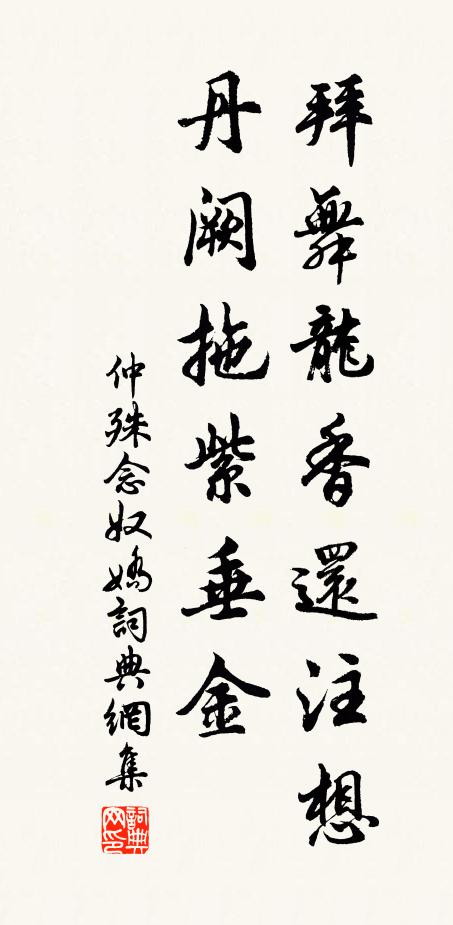 拜舞龍香還注想
丹闕拖紫垂金
仲殊念奴嬌詞典網集
詞典
网印